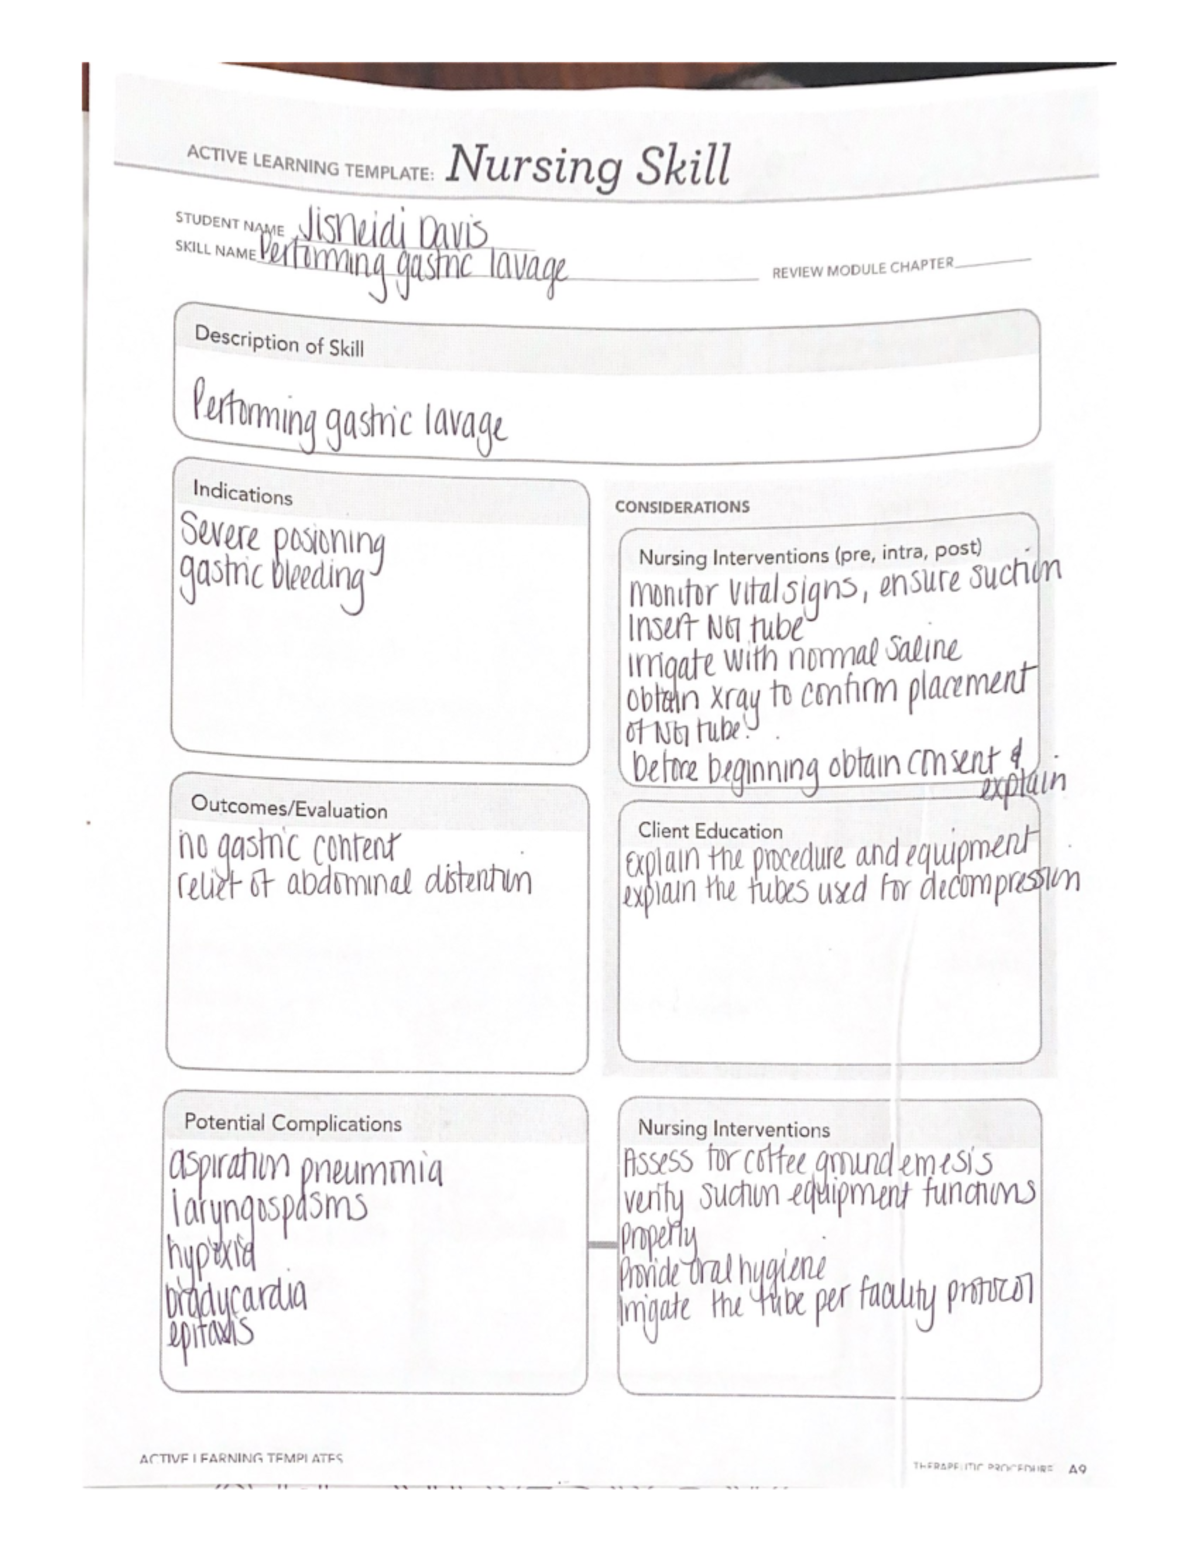 ACTIVE LEARNING TEMPLATE: Nursing Skill
STUDENT NAME Jisneidi Davis
SKILL NAME Performing gastric lavage
REVIEW MODULE CHAPTER
Description of Skill
Performing gastric lavage
Indications
Severe posioning
gastric bleeding
CONSIDERATIONS
Nursing Interventions (pre, intra, post)
monitor vital signs, ensure suction
Insert NG tube
irrigate with normal saline
obtain xray to confirm placement
of NG tube.
before beginning obtain consent &
explain
Outcomes/Evaluation
no gastric content
relief of abdominal distention
Client Education
explain the procedure and equipment
explain the tubes used for decompression
Potential Complications
aspiration pneumonia
laryngospasms
hypoxia
bradycardia
epitaxis
Nursing Interventions
Assess for coffee ground emesis
verify suction equipment functions
properly
Provide oral hygiene
Irrigate the tube per facility protocol
ACTIVE LEARNING TEMPLATES
THERAPEUTIC PROCEDURE A9